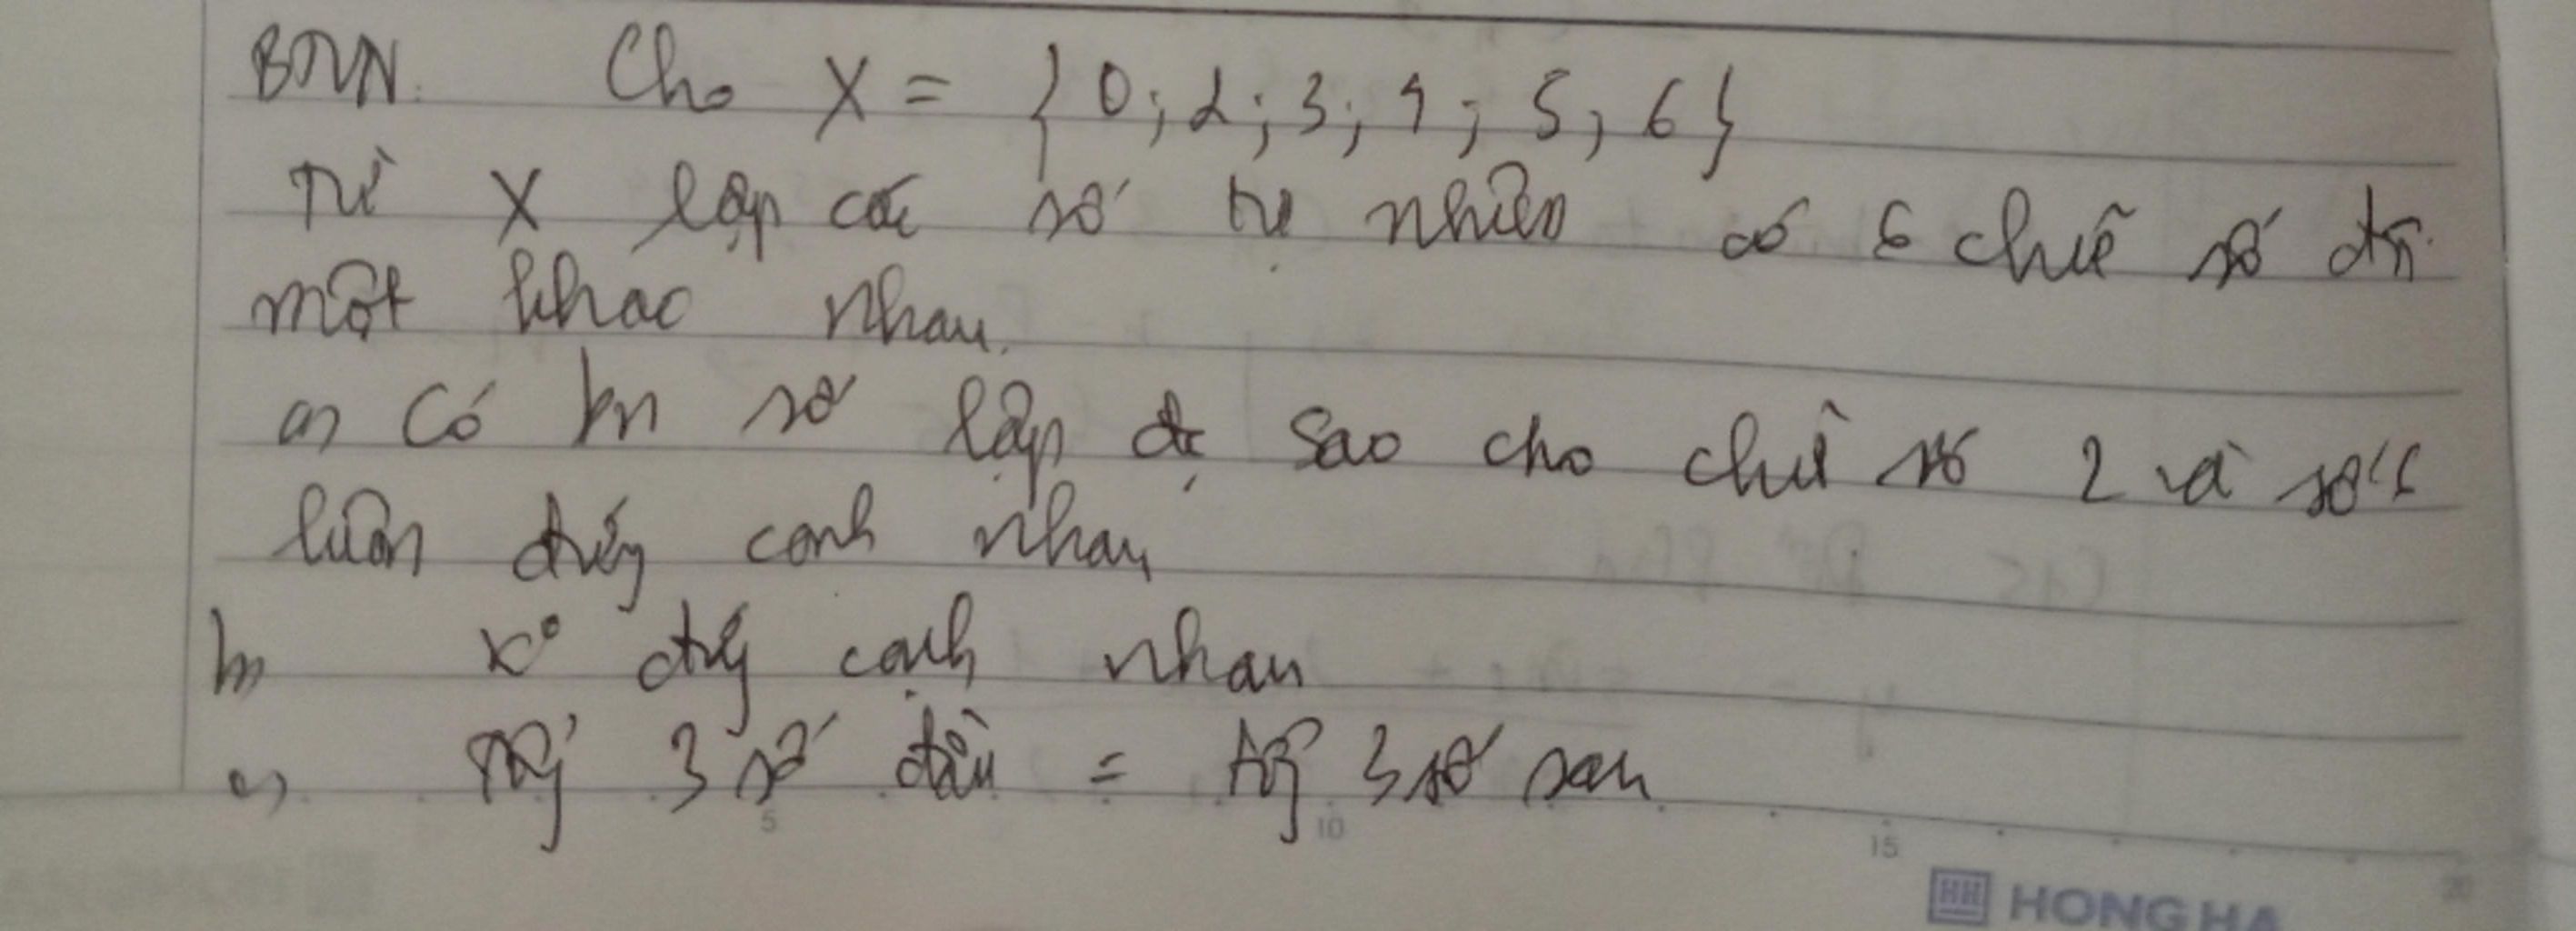 BTVN. Cho X = { 0; 2; 3; 4; 5; 6 }
Từ X lập các số tự nhiên có 6 chữ số đôi
một khác nhau.
a, Có bn số lập đc sao cho chữ số 2 và số 6
luôn đứng cạnh nhau
b, K° đứng cạnh nhau
c, Tổng 3 số đầu = tổng 3 số sau
5 10 15 20
HH HONG HA